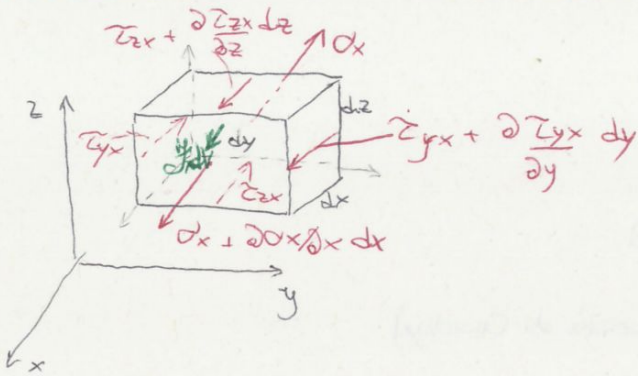 τzx + ∂τzx/∂z dz
σx
z
dz
τyx
dy
τyx + ∂τyx/∂y dy
τzx
dx
σx + ∂σx/∂x dx
y
x